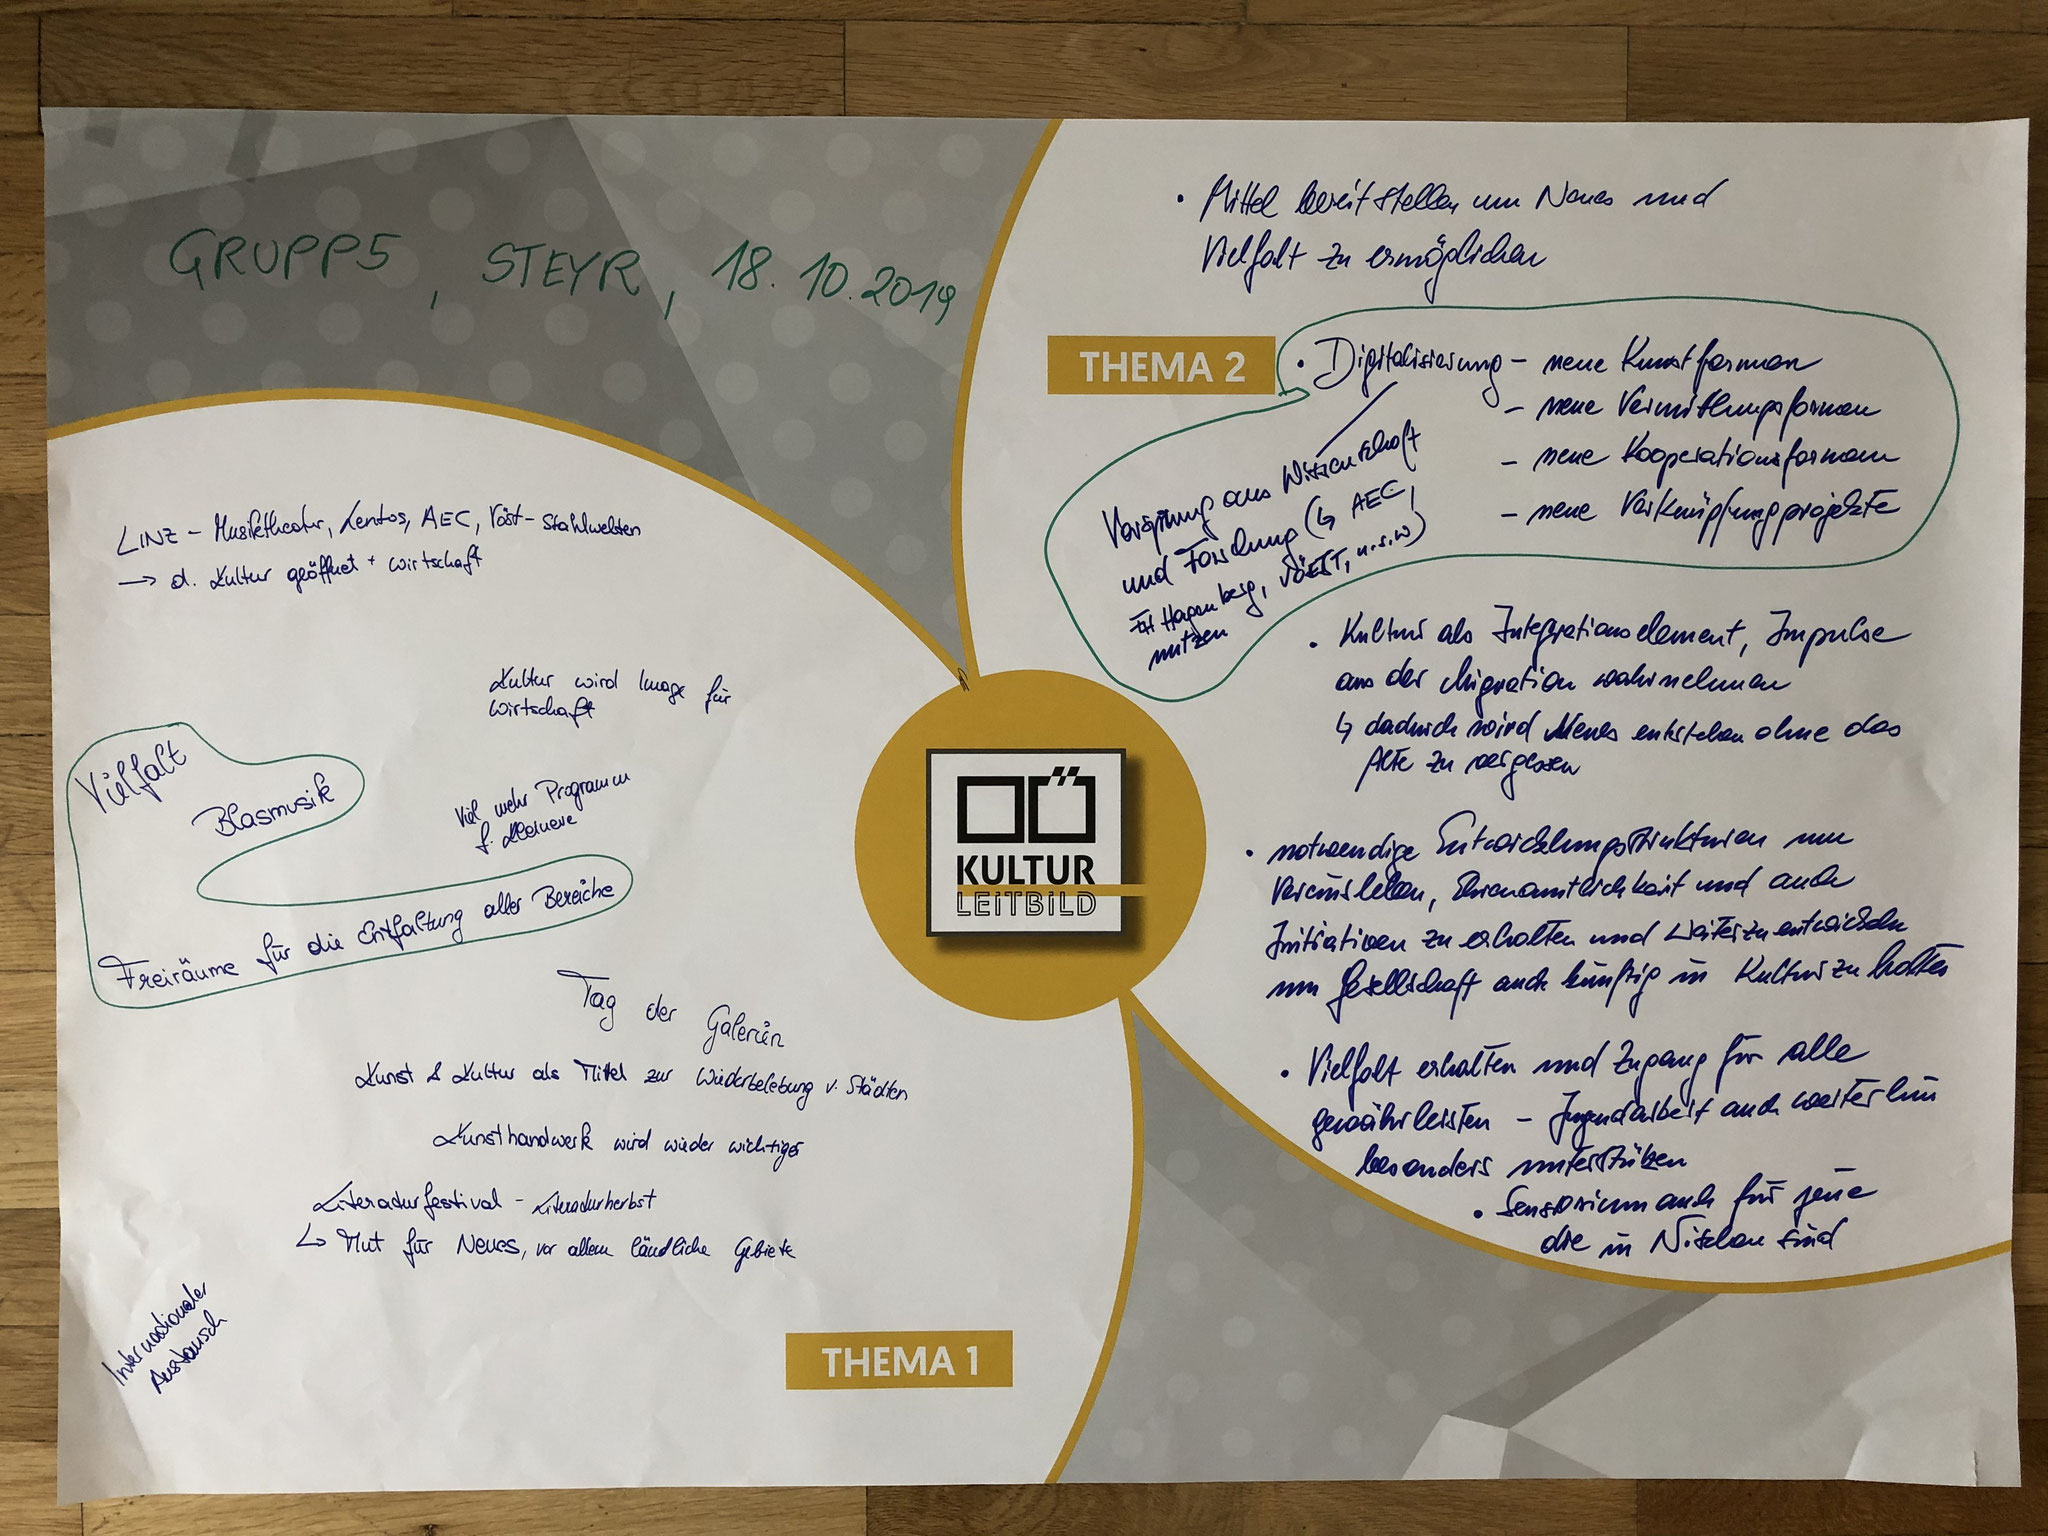 GRUPP5, STEYR, 18.10.2019
LINZ - Musiktheater, Lentos, AEC, Vöst-Stahlwelten
→ d. Kultur geöffnet + Wirtschaft
Kultur wird Image für
Wirtschaft
Vielfalt
Blasmusik
Viel mehr Programm
f. Kleinere
Freiräume für die Entfaltung aller Bereiche
Tag der Galerien
Kunst & Kultur als Mittel zur Wiederbelebung v. Städten
Kunsthandwerk wird wieder wichtiger
Literadurfestival - Literadurherbst
↳ Mut für Neues, vor allem ländliche Gebiete
Internationaler
Austausch
THEMA 1
OÖ
KULTUR
LEiTBiLD
THEMA 2
• Mittel bereitstellen um Neues und
Vielfalt zu ermöglichen
• Digitalisierung - neue Kunstformen
- neue Vermittlungsformen
- neue Kooperationsformen
- neue Verknüpfungsprojekte
Vorsprung aus Wissenschaft
und Forschung (↳ AEC,
FH Hagenberg, VÖEST, u.s.w)
nutzen
• Kultur als Integrationselement, Impulse
aus der Migration wahrnehmen
↳ dadurch wird Neues entstehen ohne das
Alte zu vergessen
• notwendige Entwicklungsstrukturen um
Vereinsleben, Ehrenamtlichkeit und auch
Initiativen zu erhalten und weiterzuentwickeln
um Gesellschaft auch künftig in Kultur zu halten
• Vielfalt erhalten und Zugang für alle
gewährleisten - Jugendarbeit auch weiterhin
besonders unterstützen
• Sensorium auch für jene
die in Nischen sind